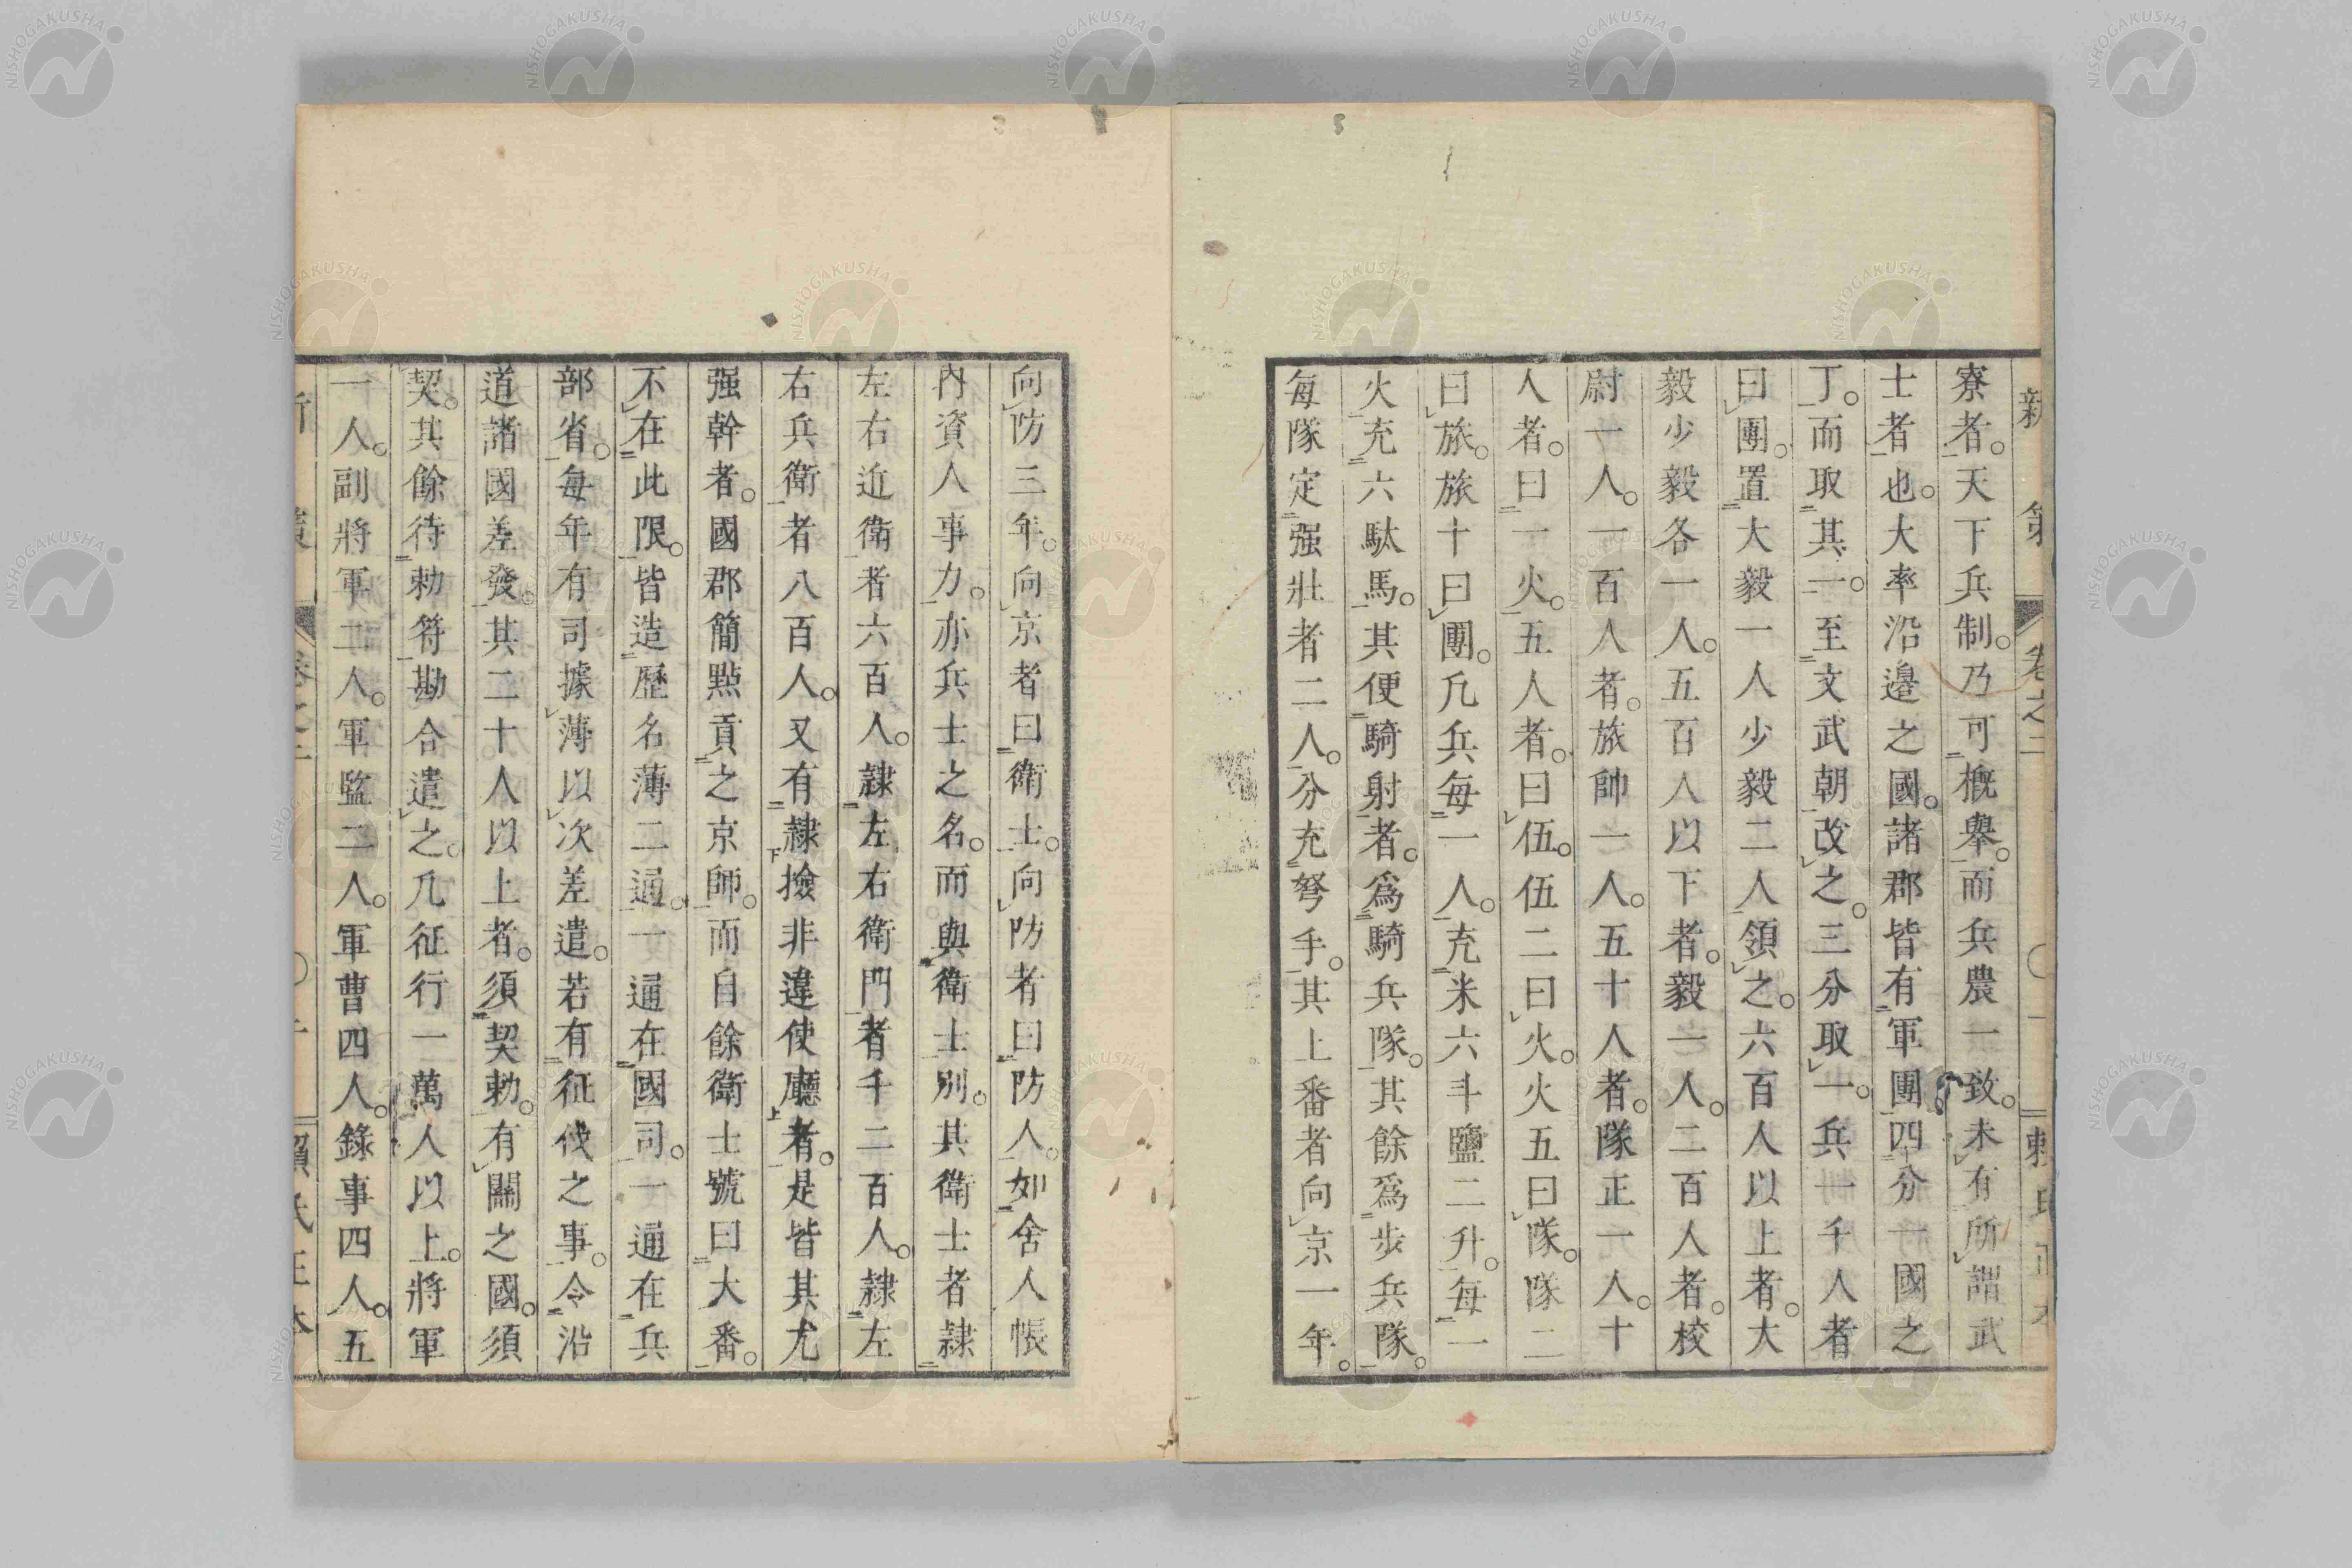 新 策 卷之二 〇 一 賴氏正本
寮者。天下兵制。乃可概擧。而兵農一致。未有所謂武
士者也。大率沿邊之國。諸郡皆有軍團。四分一國之
丁。而取其一。至文武朝改之。三分取一。兵一千人者
曰團。置大毅一人少毅二人領之。六百人以上者。大
毅少毅各一人。五百人以下者。毅一人。二百人者。校
尉一人。一百人者。旅帥一人。五十人者。隊正一人。十
人者。曰一火。五人者。曰伍。伍二曰火。火五曰隊。隊二
曰旅。旅十曰團。凡兵每一人。充米六斗鹽二升。每一
火充六駄馬。其便騎射者。爲騎兵隊。其餘爲步兵隊。
每隊定强壯者二人。分充弩手。其上番者向京一年。
向防三年。向京者曰衛士。向防者曰防人。如舍人帳
內資人事力。亦兵士之名。而與衛士別。其衛士者隷
左右近衛者六百人。隷左右衛門者千二百人。隷左
右兵衛者八百人。又有隷撿非違使廳者。是皆其尤
强幹者。國郡簡點貢之京師。而自餘衛士號曰大番。
不在此限。皆造歷名薄二通。一通在國司。一通在兵
部省。每年有司據薄以次差遣。若有征伐之事。令沿
道諸國差發。其二十人以上者。須契勅。有關之國。須
契。其餘待勅符勘合遣之。凡征行一萬人以上。將軍
一人。副將軍二人。軍監二人。軍曹四人。錄事四人。五
NISHOGAKUSHA